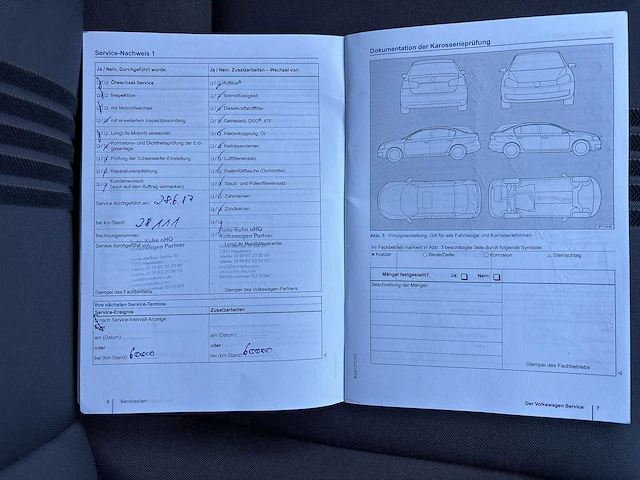 Service-Nachweis 1
Ja / Nein, Durchgeführt wurde:
Ölwechsel-Service
Inspektion
mit Motorölwechsel
mit erweitertem Inspektionsumfang
LongLife Motoröl verwendet
Korrosions- und Dichtheitsprüfung der Erdgasanlage
Prüfung der Scheinwerfer-Einstellung
Reparaturempfehlung
Kundenwunsch
(auch auf dem Auftrag vermerken)
Service durchgeführt am: 28.6.17
bei km-Stand: 28111
Rechnungsnummer:
Service durchgeführt von:
Auto-Kuhn oHG
Volkswagen Partner
Stempel des Fachbetriebs
Ja / Nein, Zusatzarbeiten – Wechsel von:
AdBlue®
Bremsflüssigkeit
Dieselkraftstofffilter
Getriebeöl: DSG®, ATF
Haldexkupplung: Öl
Keilrippenriemen
Luftfiltereinsatz
Reifenfüllflasche (Dichtmittel)
Staub- und Pollenfiltereinsatz
Zahnriemen
Zündkerzen
Auto-Kuhn oHG
Volkswagen Partner
LongLife Mobilitätsgarantie
Stempel des Volkswagen Partners
Ihre nächsten Service-Termine
Service-Ereignis
Zusatzarbeiten
nach Service-Intervall-Anzeige
am (Datum):
oder
bei (km-Stand): 60000
am (Datum):
oder
bei (km-Stand): 60000
6 Serviceplan
Dokumentation der Karosserieprüfung
Abb. 3 Prinzipdarstellung. Gilt für alle Fahrzeuge und Karosserieformen.
Ihr Fachbetrieb markiert in Abb. 3 beschädigte Teile durch folgende Symbole:
Kratzer
Beule/Delle
Korrosion
Steinschlag
Mängel festgestellt? Ja: Nein:
Beschreibung der Mängel:
Stempel des Fachbetriebs
Der Volkswagen Service 7